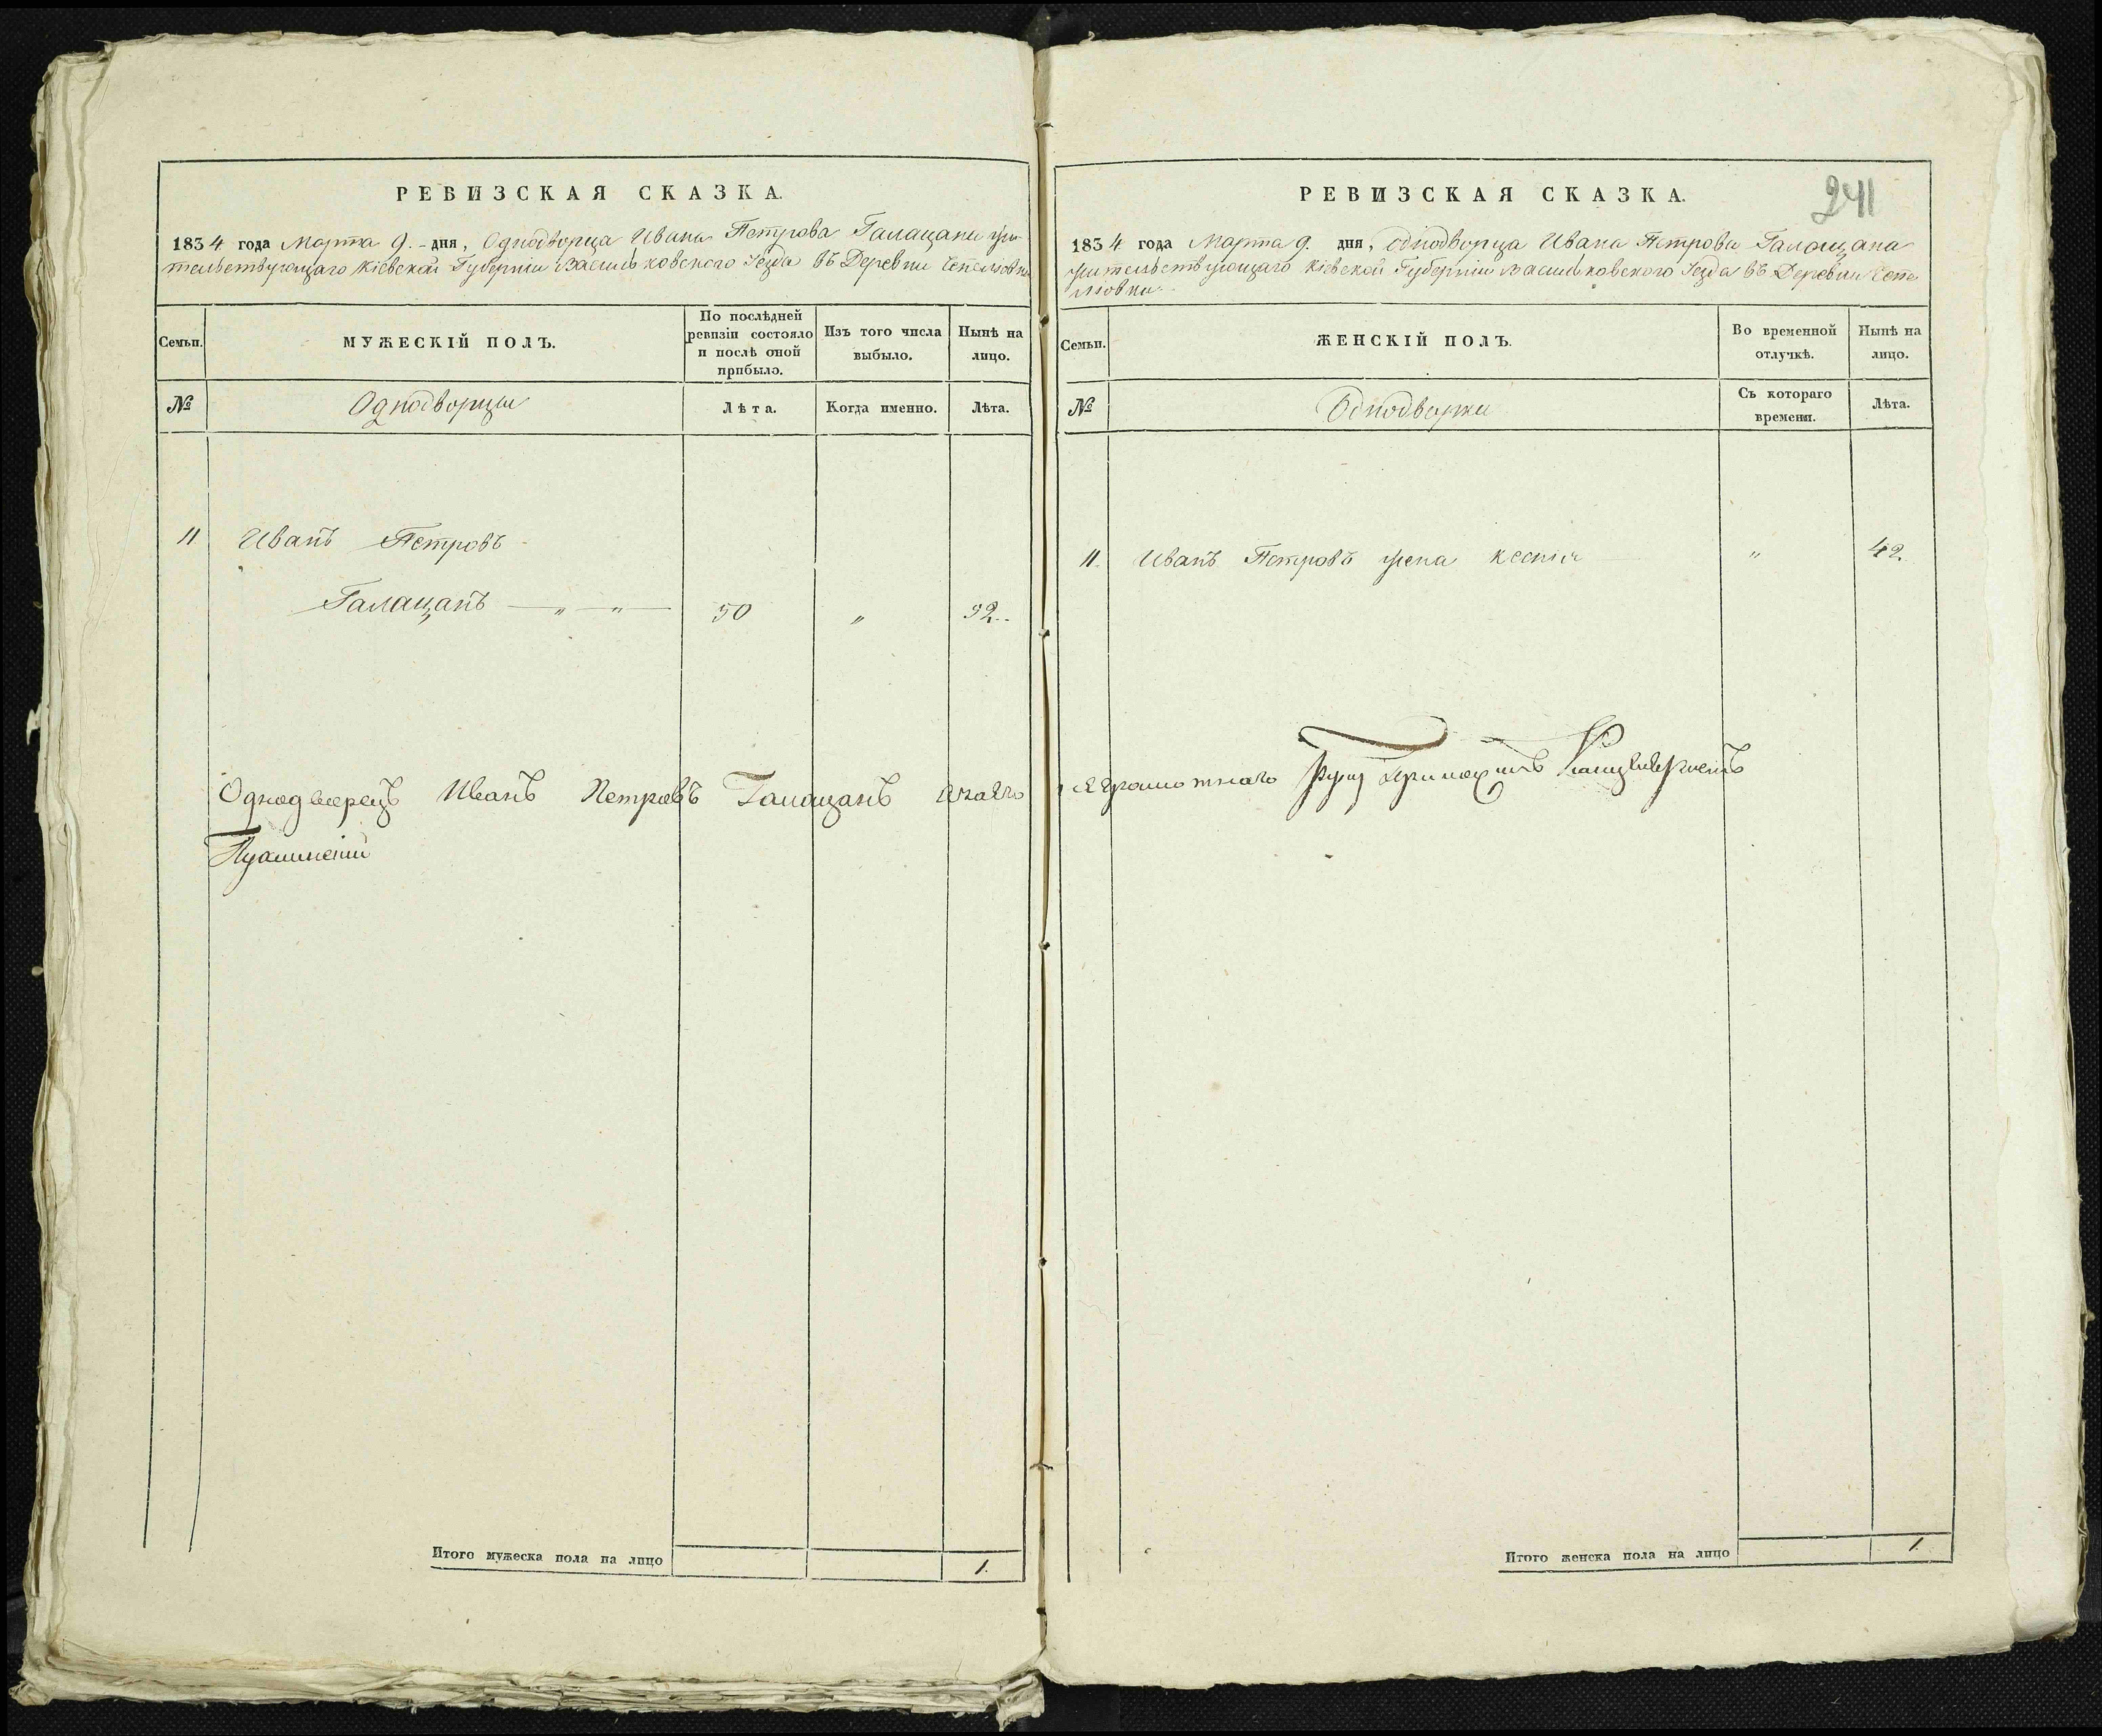 РЕВИЗСКАЯ СКАЗКА.
1834 года Марта 9. дня, Однодворца Ивана Петрова Галацана жи-
тельствующаго Кіевской Губерніи Васильковского Уезда въ Деревни
Семьи.
МУЖЕСКІЙ ПОЛЪ.
По послѣдней ревизіи состояло и послѣ оной прибыло.
Изъ того числа выбыло.
Нынѣ на лицо.
№
Однодворцы
Лѣта.
Когда именно.
Лѣта.
11 Иванъ Петровъ
Галацанъ — „ — „ — 50 „ 52.
Однодворецъ Иванъ Петровъ Галацанъ
Итого мужеска пола на лицо 1.
РЕВИЗСКАЯ СКАЗКА.
241
1834 года Марта 9. дня, Однодворца Ивана Петрова Галацана
жительствующаго Кіевской Губерніи Васильковского Уезда въ Деревни
Семьи.
ЖЕНСКІЙ ПОЛЪ.
Во временной отлучкѣ.
Нынѣ на лицо.
№
Однодворки
Съ котораго времени.
Лѣта.
11. Иванъ Петровъ жена Ксенія „ 42.
Итого женска пола на лицо 1.